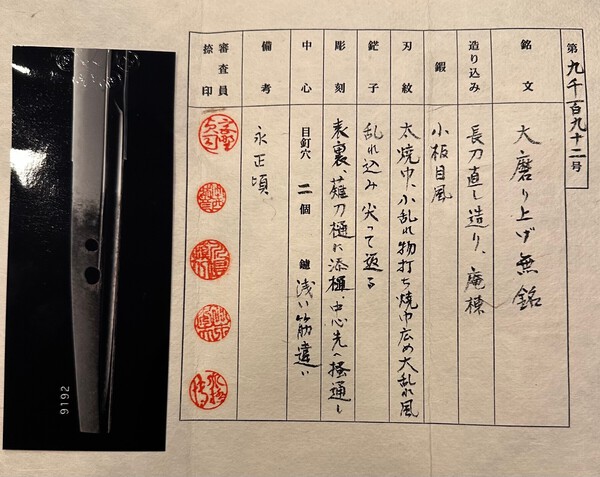 第九千百九十二号
銘文 大磨り上げ無銘
造り込み 長刀直し造り、庵棟
鍜 小板目風
刃紋 本焼巾、小乱れ物打ち焼巾広め大乱れ風
鋩子 乱れ込み尖って返る
彫刻 表裏、薙刀樋に添樋、中心先へ掻通し
中心 目釘穴 二個 鑢 浅い筋違い
備考 永正頃
審査員
捺印
9192